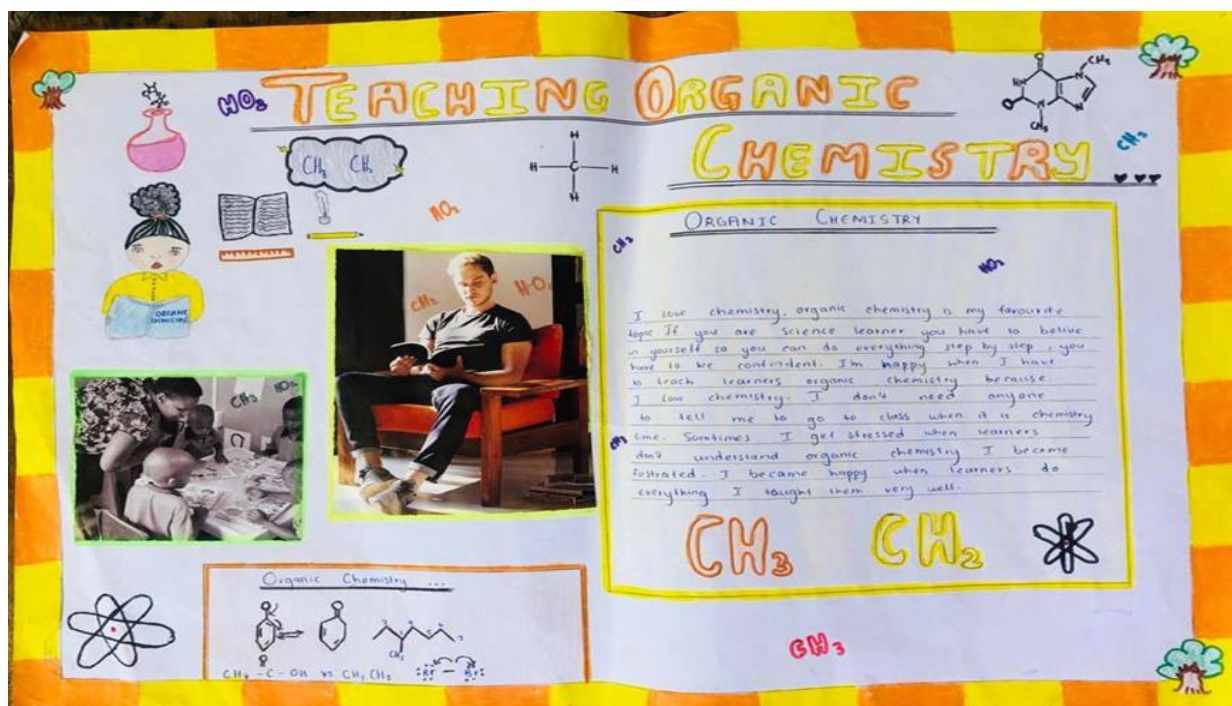 HO₂ TEACHING ORGANIC
CHEMISTRY...
CH₃
CH₃
CH₃
O
HN
N
O
N
N
CH₃ CH₃
H
H C H
H
HO₂
ORGANIC
CHEMISTRY
CH₂
H-O₂
CH₃ HO₂
ORGANIC CHEMISTRY
CH₃
HO₂
I love chemistry, organic chemistry is my favourite
topic. If you are science learner you have to belive
in yourself so you can do everything step by step, you
have to be confindent. I'm happy when I have
to teach learners organic chemistry because
I love chemistry. I don't need anyone
to tell me to go to class when it is chemistry
CH₃ time. Somtimes I get stressed when learners
don't understand organic chemistry I became
fustrated. I became happy when learners do
everything I taught them very well.
CH₃ CH₂
Organic Chemistry ...
CH₃
CH₃ - C - OH vs CH₃ CH₃ :Br - Br:
CH₃